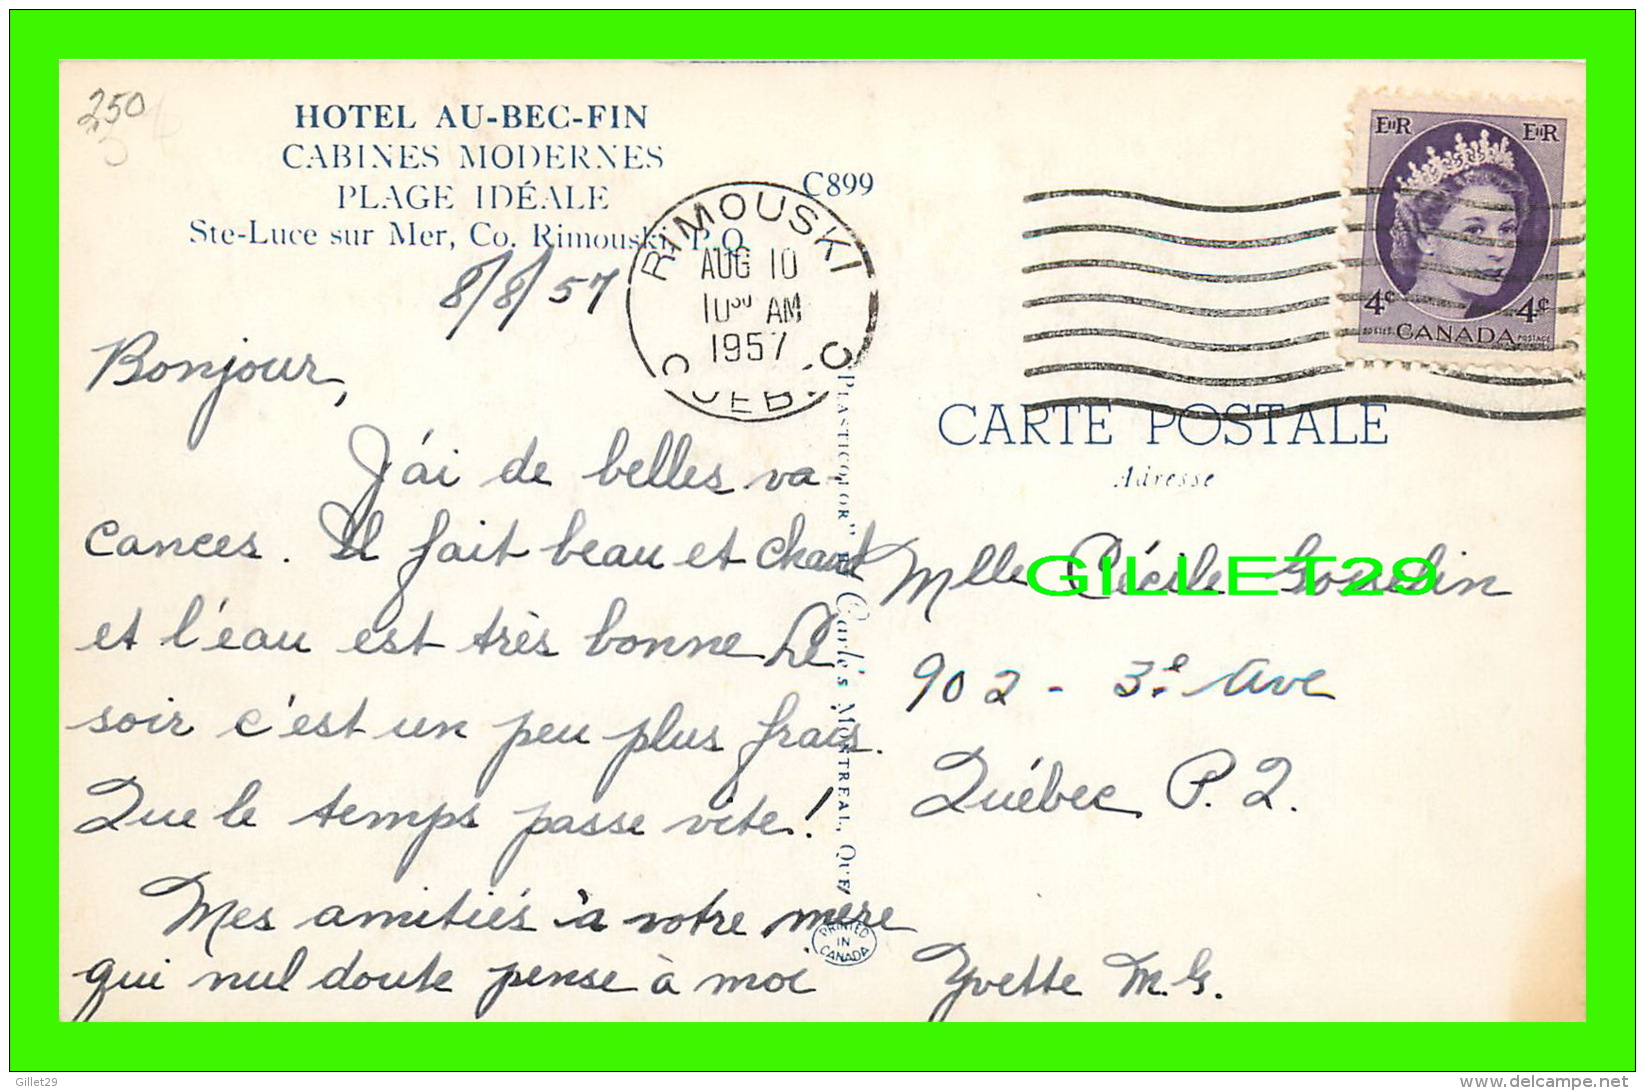 250
HOTEL AU-BEC-FIN
CABINES MODERNES
PLAGE IDÉALE
Ste-Luce sur Mer, Co. Rimouski, P.Q.
C899
RIMOUSKI
AUG 10
10⁰⁰ AM
1957
8/8/57
E II R E II R
4¢ 4¢
POSTES CANADA POSTAGE
CARTE POSTALE
Adresse
Bonjour,
J'ai de belles va-
cances. Il fait beau et chaud
et l'eau est très bonne. Le
soir c'est un peu plus frais.
Que le temps passe vite!
Mes amitiés à votre mère
qui nul doute pense à moi
Yvette M.G.
PLASTICOLOR"
Carle's MONTREAL, QUE.
PRINTED
IN
CANADA
Mlle Cécile Gosselin
902 - 3e Ave
Québec P.Q.
GILLET29
Gillet29
www.delcampe.net